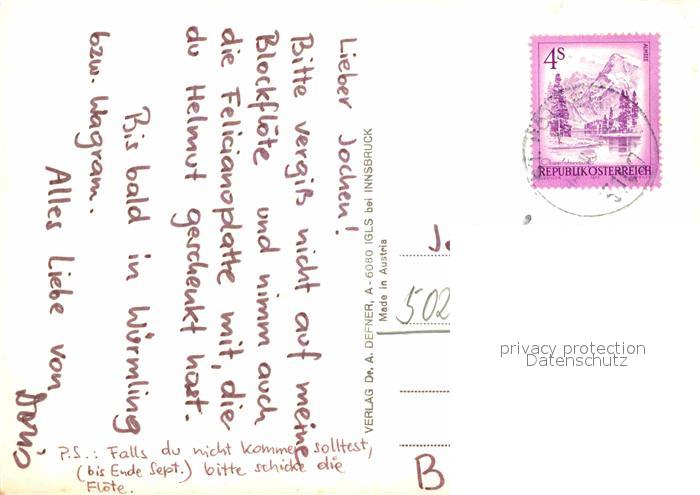 Lieber Jochen!
Bitte vergiß nicht auf meine
Blockflöte und nimm auch
die Felicianoplatte mit, die
du Helmut geschenkt hast.
Bis bald in Würmling
bzw. Wagram.
Alles Liebe von
Doris
P.S.: Falls du nicht kommen solltest,
(bis Ende Sept.) bitte schicke die
Flöte.
VERLAG Dr. A. DEFNER, A-6080 IGLS bei INNSBRUCK
Made in Austria
4S
ALMSEE
REPUBLIK ÖSTERREICH
J
502
B
privacy protection
Datenschutz